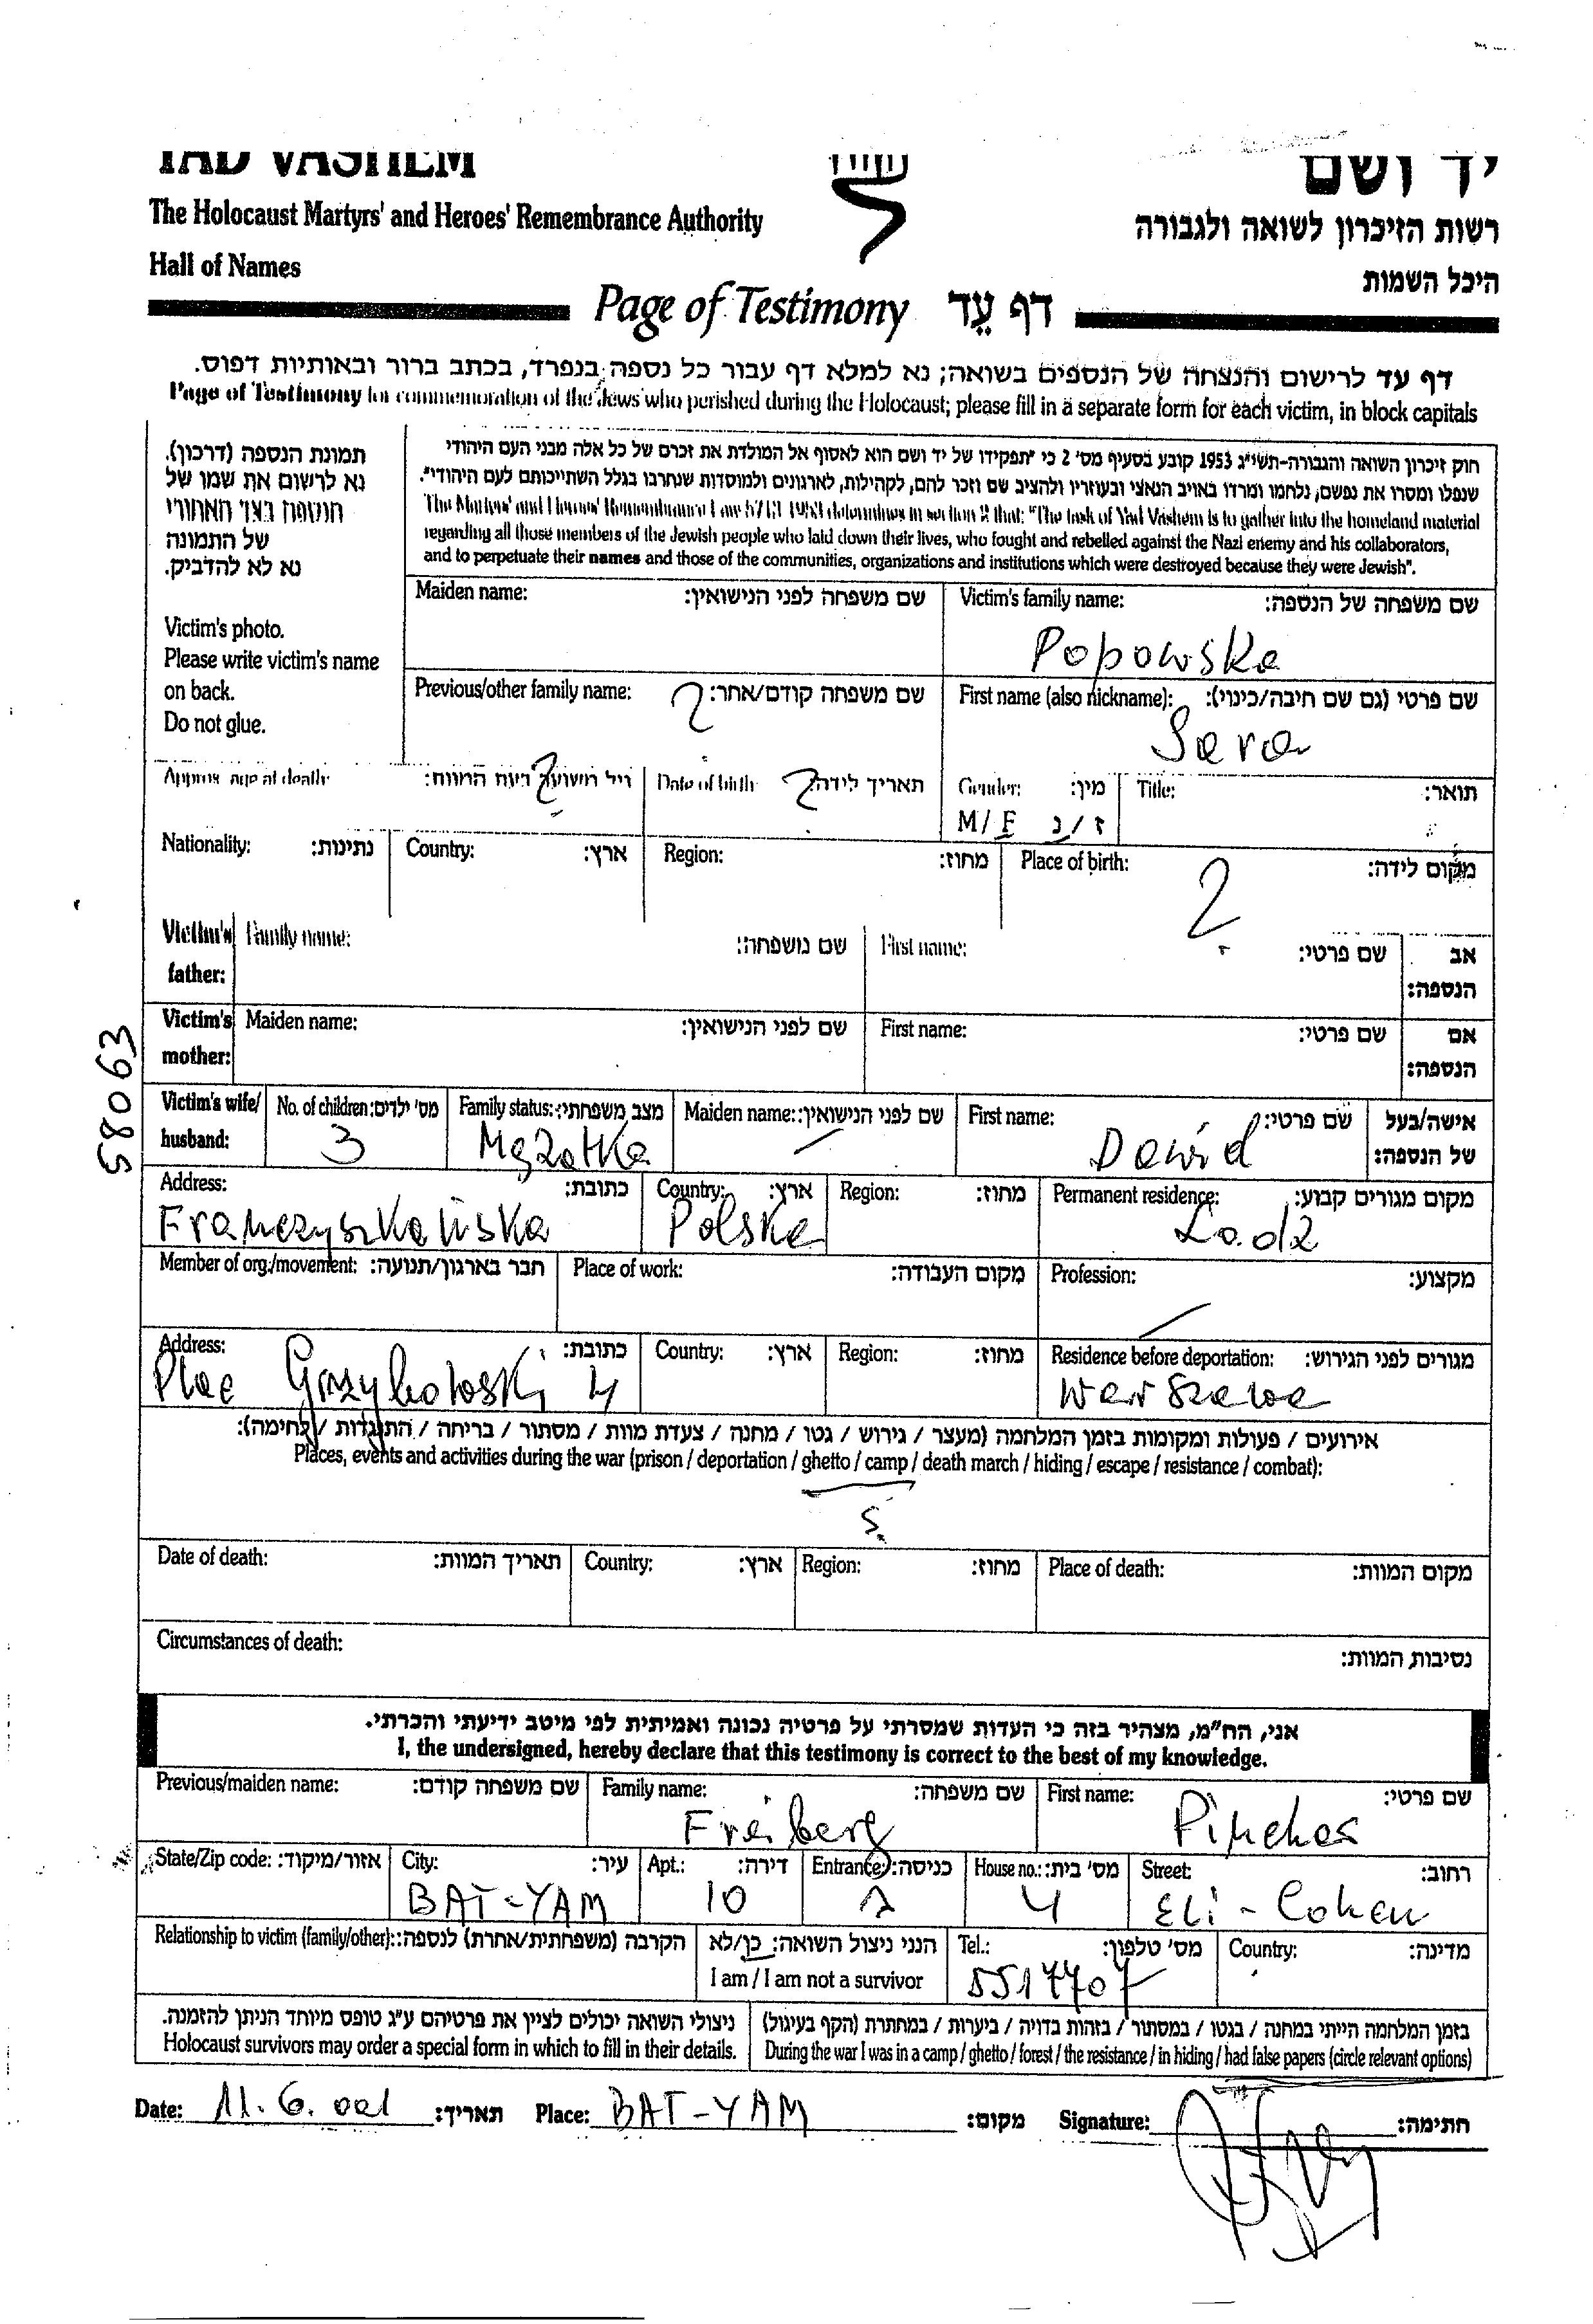 YAD VASHEM יד ושם
The Holocaust Martyrs' and Heroes' Remembrance Authority רשות הזיכרון לשואה ולגבורה
Hall of Names היכל השמות
Page of Testimony דף עֵד
דף עד לרישום והנצחה של הנספים בשואה; נא למלא דף עבור כל נספה בנפרד, בכתב ברור ובאותיות דפוס.
Page of Testimony for commemoration of the Jews who perished during the Holocaust; please fill in a separate form for each victim, in block capitals
תמונת הנספה (דרכון).
נא לרשום את שמו של
הנספה בצד האחורי
של התמונה
נא לא להדביק.
Victim's photo.
Please write victim's name
on back.
Do not glue.
חוק זיכרון השואה והגבורה-תשי"ג 1953 קובע בסעיף מס' 2 כי "תפקידו של יד ושם הוא לאסוף אל המולדת את זכרם של כל אלה מבני העם היהודי
שנפלו ומסרו את נפשם, נלחמו ומרדו באויב הנאצי ובעוזריו ולהציב שם וזכר להם, לקהילות, לארגונים ולמוסדות שנחרבו בגלל השתייכותם לעם היהודי".
The Martyrs' and Heroes' Remembrance Law 5713-1953 determines in section 2 that: "The task of Yad Vashem is to gather into the homeland material
regarding all those members of the Jewish people who laid down their lives, who fought and rebelled against the Nazi enemy and his collaborators,
and to perpetuate their names and those of the communities, organizations and institutions which were destroyed because they were Jewish".
Maiden name: שם משפחה לפני הנישואין: Victim's family name: שם משפחה של הנספה:
Popowska
Previous/other family name: שם משפחה קודם/אחר: ? First name (also nickname): שם פרטי (גם שם חיבה/כינוי):
Sara
Approx. age at death: גיל משוער בעת המוות: ? Date of birth: תאריך לידה: ? Gender: מין: Title: תואר:
M/F ז/נ
Nationality: נתינות: Country: ארץ: Region: מחוז: Place of birth: מקום לידה:
?
Victim's father: Family name: שם משפחה: First name: שם פרטי: אב הנספה:
Victim's mother: Maiden name: שם לפני הנישואין: First name: שם פרטי: אם הנספה:
58063
Victim's wife/ husband: No. of children: מס' ילדים: Family status: מצב משפחתי: Maiden name: שם לפני הנישואין: First name: שם פרטי: אישה/בעל של הנספה:
3 Mężatka / Dawid
Address: כתובת: Country: ארץ: Region: מחוז: Permanent residence: מקום מגורים קבוע:
Franczyszkańska Polska Lodz
Member of org./movement: חבר בארגון/תנועה: Place of work: מקום העבודה: Profession: מקצוע:
/
Address: כתובת: Country: ארץ: Region: מחוז: Residence before deportation: מגורים לפני הגירוש:
Plac Grzybowski 4 Warszawa
אירועים / פעולות ומקומות בזמן המלחמה (מעצר / גירוש / גטו / מחנה / צעדת מוות / מסתור / בריחה / התנגדות / לחימה):
Places, events and activities during the war (prison / deportation / ghetto / camp / death march / hiding / escape / resistance / combat):
Date of death: תאריך המוות: Country: ארץ: Region: מחוז: Place of death: מקום המוות:
Circumstances of death: נסיבות המוות:
אני, הח"מ, מצהיר בזה כי העדות שמסרתי על פרטיה נכונה ואמיתית לפי מיטב ידיעתי והכרתי.
I, the undersigned, hereby declare that this testimony is correct to the best of my knowledge.
Previous/maiden name: שם משפחה קודם: Family name: שם משפחה: First name: שם פרטי:
Freiberg Pinchas
State/Zip code: אזור/מיקוד: City: עיר: Apt.: דירה: Entrance: כניסה: House no.: מס' בית: Street: רחוב:
BAT-YAM 10 4 ELi-Cohen
Relationship to victim (family/other): הקרבה (משפחתית/אחרת) לנספה: הנני ניצול השואה: כן/לא Tel.: מס' טלפון: Country: מדינה:
I am / I am not a survivor 5517707
ניצולי השואה יכולים לציין את פרטיהם ע"ג טופס מיוחד הניתן להזמנה. בזמן המלחמה הייתי במחנה / בגטו / במסתור / בזהות בדויה / ביערות / במחתרת (הקף בעיגול)
Holocaust survivors may order a special form in which to fill in their details. During the war I was in a camp / ghetto / forest / the resistance / in hiding / had false papers (circle relevant options)
Date: 11.6.001 תאריך: Place: BAT-YAM מקום: Signature: חתימה: